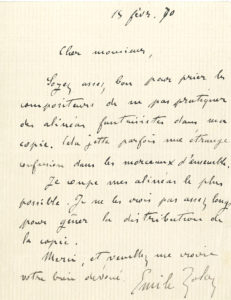 15 févr. 70
Cher monsieur,
Soyez assez bon pour prier les
compositeurs de ne pas pratiquer
des alinéas fantaisistes dans ma
copie. Cela jette parfois une étrange
confusion dans les morceaux d'ensemble.
Je coupe mes alinéas le plus
possible. Je ne les crois pas assez longs
pour gêner la distribution de
la copie.
Merci, et veuillez me croire
votre bien dévoué
Emile Zola